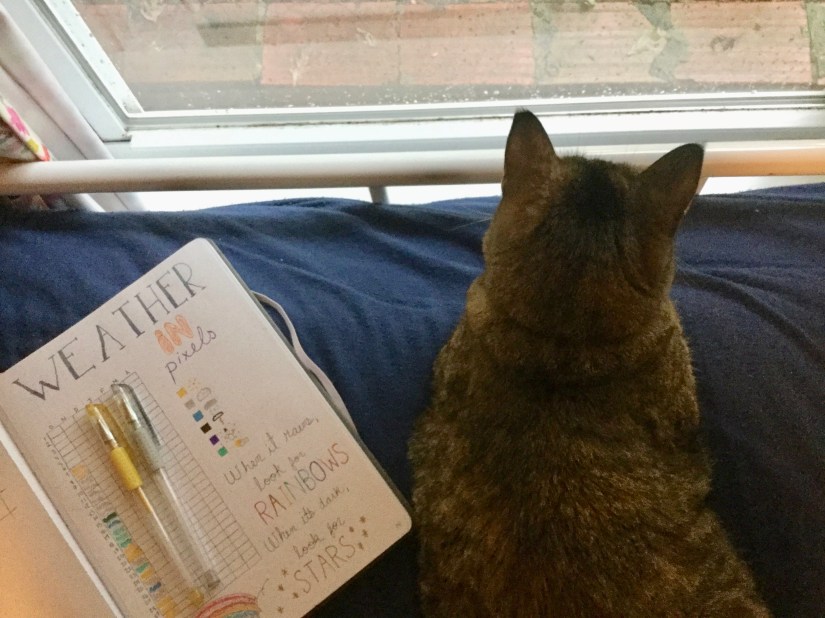 WEATHER
IN
pixels
When it rains,
look for
RAINBOWS
When it's dark,
look for
STARS